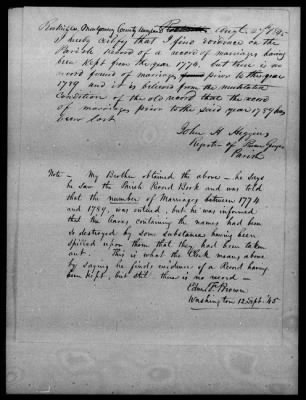 Rockville, Montgomery County Augt. 27th 1845
I hereby certify that I find evidence on the
Parish Record of a record of marriages having
been kept from the year 1774, but there is no
record found of marriages prior to the year
1789 and it is believed from the mutilated
condition of the old record that the record
of marriages prior to the said year 1789 has
been lost
John H. Higgins
Register of
Parish
Note - My Brother obtained the above - he says
he saw the Parish Record Book and was told
that the number of Marriages between 1774
and 1789, was entered, but he was informed
that the leaves containing the names had been
so destroyed by some substance having been
spilled upon them that they had been taken
out. This is what the Clerk means above
by saying he finds evidence of a Record having
been kept, but still there is no record -
Edmd. F. Brown
Washington 12 Sept. '45